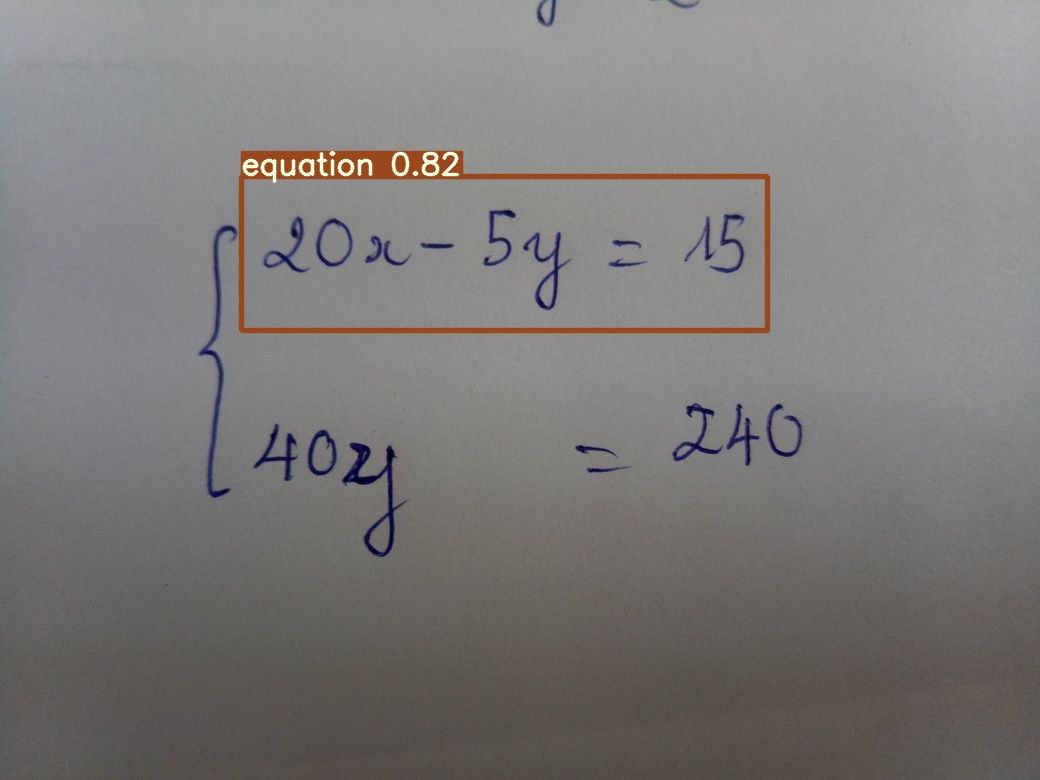 equation 0.82
20x - 5y = 15
40xy = 240